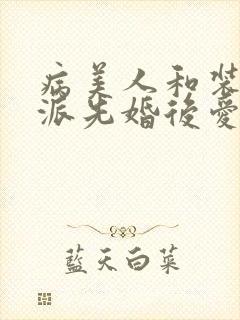 病美人和裝
派先婚後愛
藍天白菜